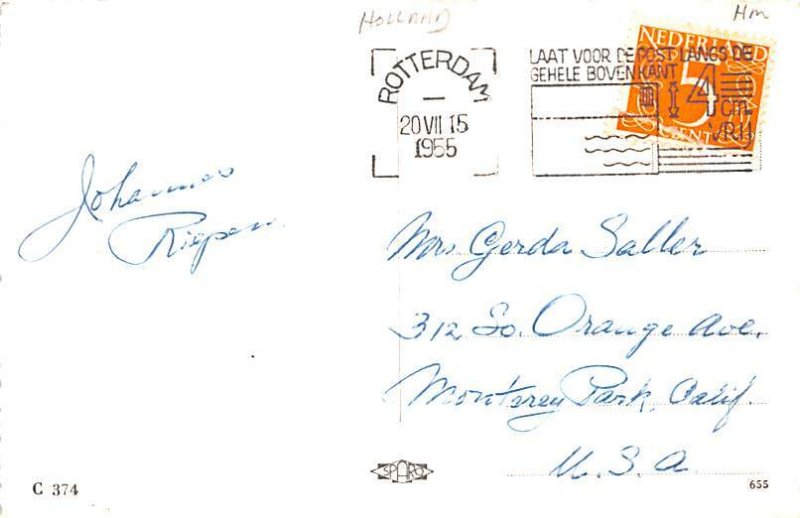 HOLLAND
HM
ROTTERDAM
20 VII 15
1955
LAAT VOOR DE POST LANGS DE
GEHELE BOVENKANT
4
cm.
VRIJ
NEDERLAND
5
CENT
Johannes
Riepen
Mrs Gerda Saller
312 So. Orange Ave.
Monterey Park, Calif.
U.S.A
SPARO
C 374
655